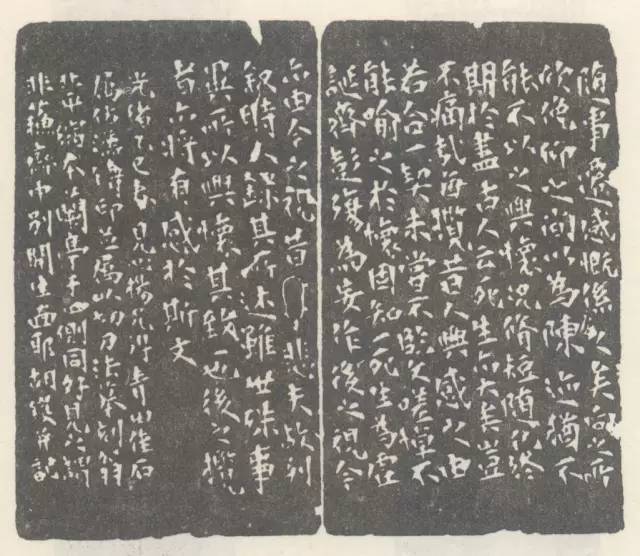 隨事遷感慨係之矣向之所
欣俛仰之間以為陳迹猶不
能不以之興懷況脩短隨化終
期於盡古人云死生亦大矣豈
不痛哉每攬昔人興感之由
若合一契未嘗不臨文嗟悼不
能喻之於懷固知一死生為虛
誕齊彭殤為妄作後之視今
亦由今之視昔悲夫故列
敘時人錄其所述雖世殊事
異所以興懷其致一也後之攬
者亦將有感於斯文
光緒乙巳春見楊兄得青山佳石
屬仿漢印並屬以切刀法摹刻翁
北平縮本蘭亭于四側同好見之謂
非蘇齋中別開生面耶胡钁并記